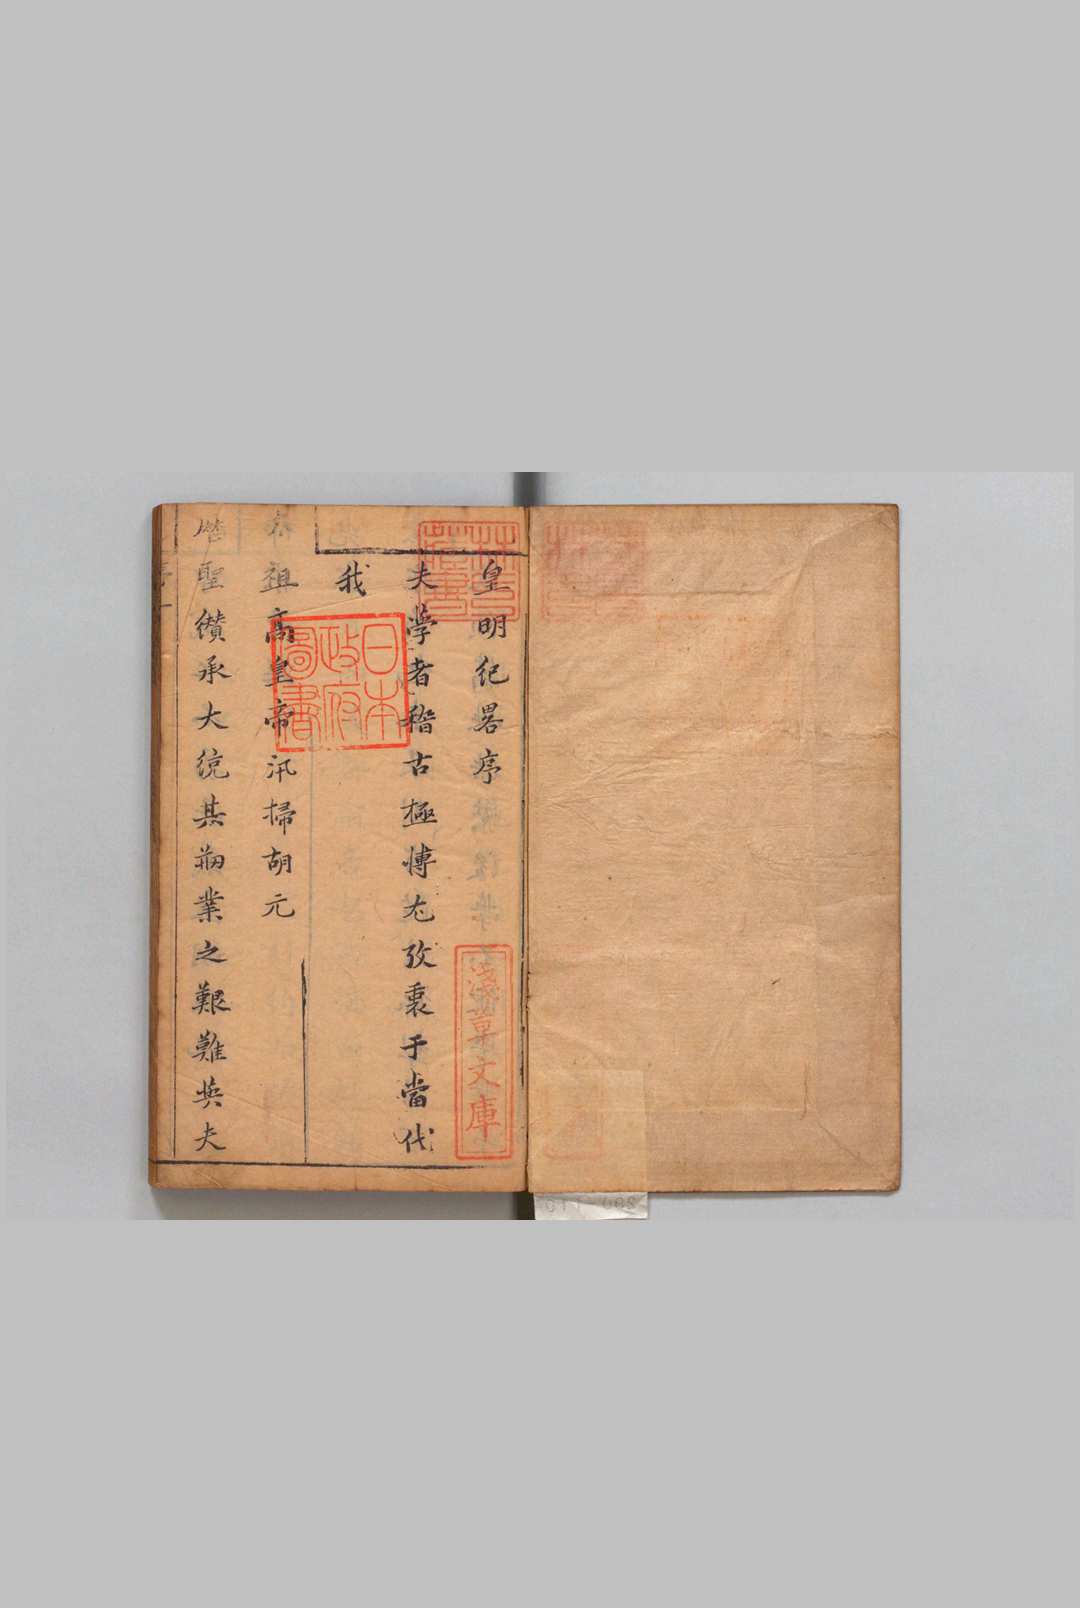 皇明紀畧序
夫學者稽古極博尤攷衷于當代
我
祖高皇帝汛掃胡元
聖纘承大統其刱業之艱難英夫
日本政府圖書
淺草文庫